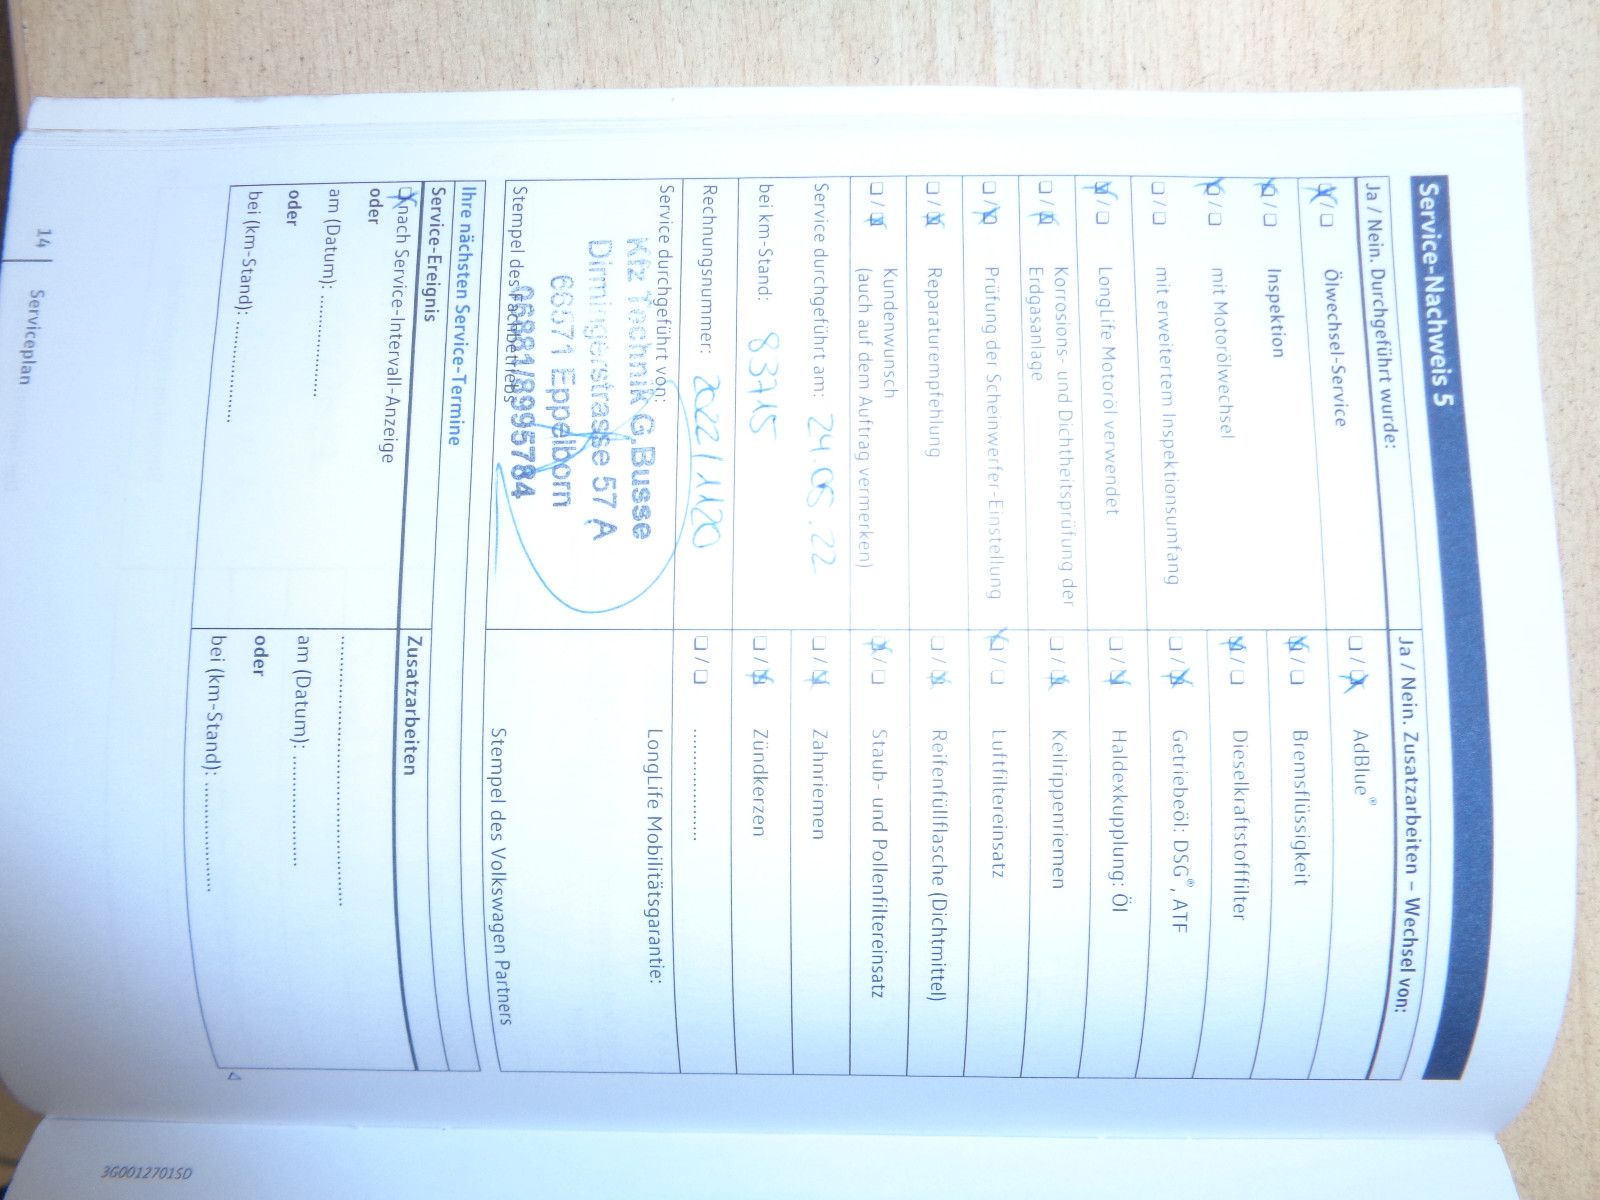 Service-Nachweis 5
Ja / Nein. Durchgeführt wurde:
☒ / ☐ Ölwechsel-Service
☒ / ☐ Inspektion
☒ / ☐ mit Motorölwechsel
☐ / ☐ mit erweitertem Inspektionsumfang
☒ / ☐ LongLife Motoröl verwendet
☐ / ☒ Korrosions- und Dichtheitsprüfung der
Erdgasanlage
☐ / ☒ Prüfung der Scheinwerfer-Einstellung
☐ / ☒ Reparaturempfehlung
☐ / ☒ Kundenwunsch
(auch auf dem Auftrag vermerken)
Service durchgeführt am: 24.05.22
bei km-Stand: 83715
Rechnungsnummer: 2022/1120
Service durchgeführt von:
Kfz Technik G.Busse
Dirmingerstrasse 57 A
66571 Eppelborn
06881/8995784
Stempel des Fachbetriebs
Ja / Nein. Zusatzarbeiten – Wechsel von:
☐ / ☒ AdBlue®
☒ / ☐ Bremsflüssigkeit
☒ / ☐ Dieselkraftstofffilter
☐ / ☒ Getriebeöl: DSG®, ATF
☐ / ☒ Haldexkupplung: Öl
☐ / ☒ Keilrippenriemen
☒ / ☐ Luftfiltereinsatz
☐ / ☒ Reifenfüllflasche (Dichtmittel)
☒ / ☐ Staub- und Pollenfiltereinsatz
☐ / ☒ Zahnriemen
☐ / ☒ Zündkerzen
☐ / ☐ ....................
LongLife Mobilitätsgarantie:
Stempel des Volkswagen Partners
Ihre nächsten Service-Termine
Service-Ereignis
☒ nach Service-Intervall-Anzeige
oder
am (Datum): ..................
oder
bei (km-Stand): ..................
Zusatzarbeiten
..............................................
am (Datum): ....................
oder
bei (km-Stand): ....................
14 Serviceplan
3G0012701SD